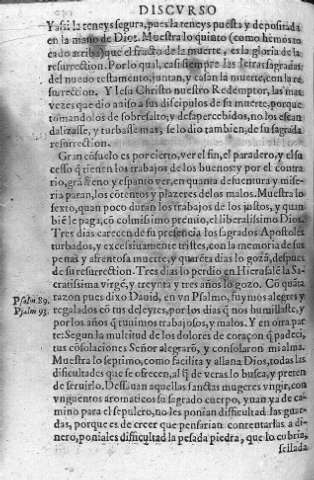 DISCVRSO
Y assi la teneys segura, pues la teneys puesta y depositada
en la mano de Dios. Muestra lo quinto (como hemos to
cado arriba) que el fructo de la muerte, es la gloria de la
resurrection. Por lo qual, casi siempre las letras sagradas
del nueuo testamento, juntan, y casan la muerte, con la re
surrection. Y Iesu Christo nuestro Redemptor, las mas
vezes que dio auiso a sus discipulos de su muerte, porque
tomandolos de sobresalto, y desapercebidos, no los escan
dalizasse, y turbasse mas, se lo dio tambien, de su sagrada
resurrection.
Gran cōsuelo es por cierto, ver el fin, el paradero, y el su
cesso q̄ tienen los trabajos de los buenos: y por el contra
rio, grā freno y espanto ver, en quanta desuentura y mise
ria paran, los cōtentos y plazeres del malos. Muestra lo
sexto, quan poco duran los trabajos de los justos, y quan
biē le paga, cō colmissimo premio, el liberalissimo Dios.
Tres dias carecen de su presencia los sagrados Apostoles
turbados, y excessiuamente tristes, con la memoria de sus
penas y afrentosa muerte, y quarēta dias lo gozā, despues
de su resurrection. Tres dias lo perdio en Hierusalē la Sa
cratissima virgē, y treynta y tres años lo gozo. Cō quāta
Psalm 89.
razon pues dixo Dauid, en vn Psalmo, fuymos alegres y
Psalm 93.
regalados cō tus deleytes, por los dias q̄ nos humillaste, y
por los años q̄ tuuimos trabajosos, y malos. Y en otra par
te: Segun la multitud de los dolores de coraçon q̄ padeci,
tus cōsolaciones Señor alegrarō, y consolaron mi alma.
Muestra lo septimo, como facilita y allana Dios, todas las
difficultades que se ofrecen, al q̄ de veras lo busca, y preten
de seruirlo. Desseauan aquellas sanctas mugeres vngir, con
vnguentos aromaticos su sagrado cuerpo, yuan ya de ca-
mino para el sepulcro, no les ponian difficultad las guar-
das, porque es de creer que pensarian contentarlas a di-
nero, poniales difficultad la pesada piedra, que lo cubria,
sellada